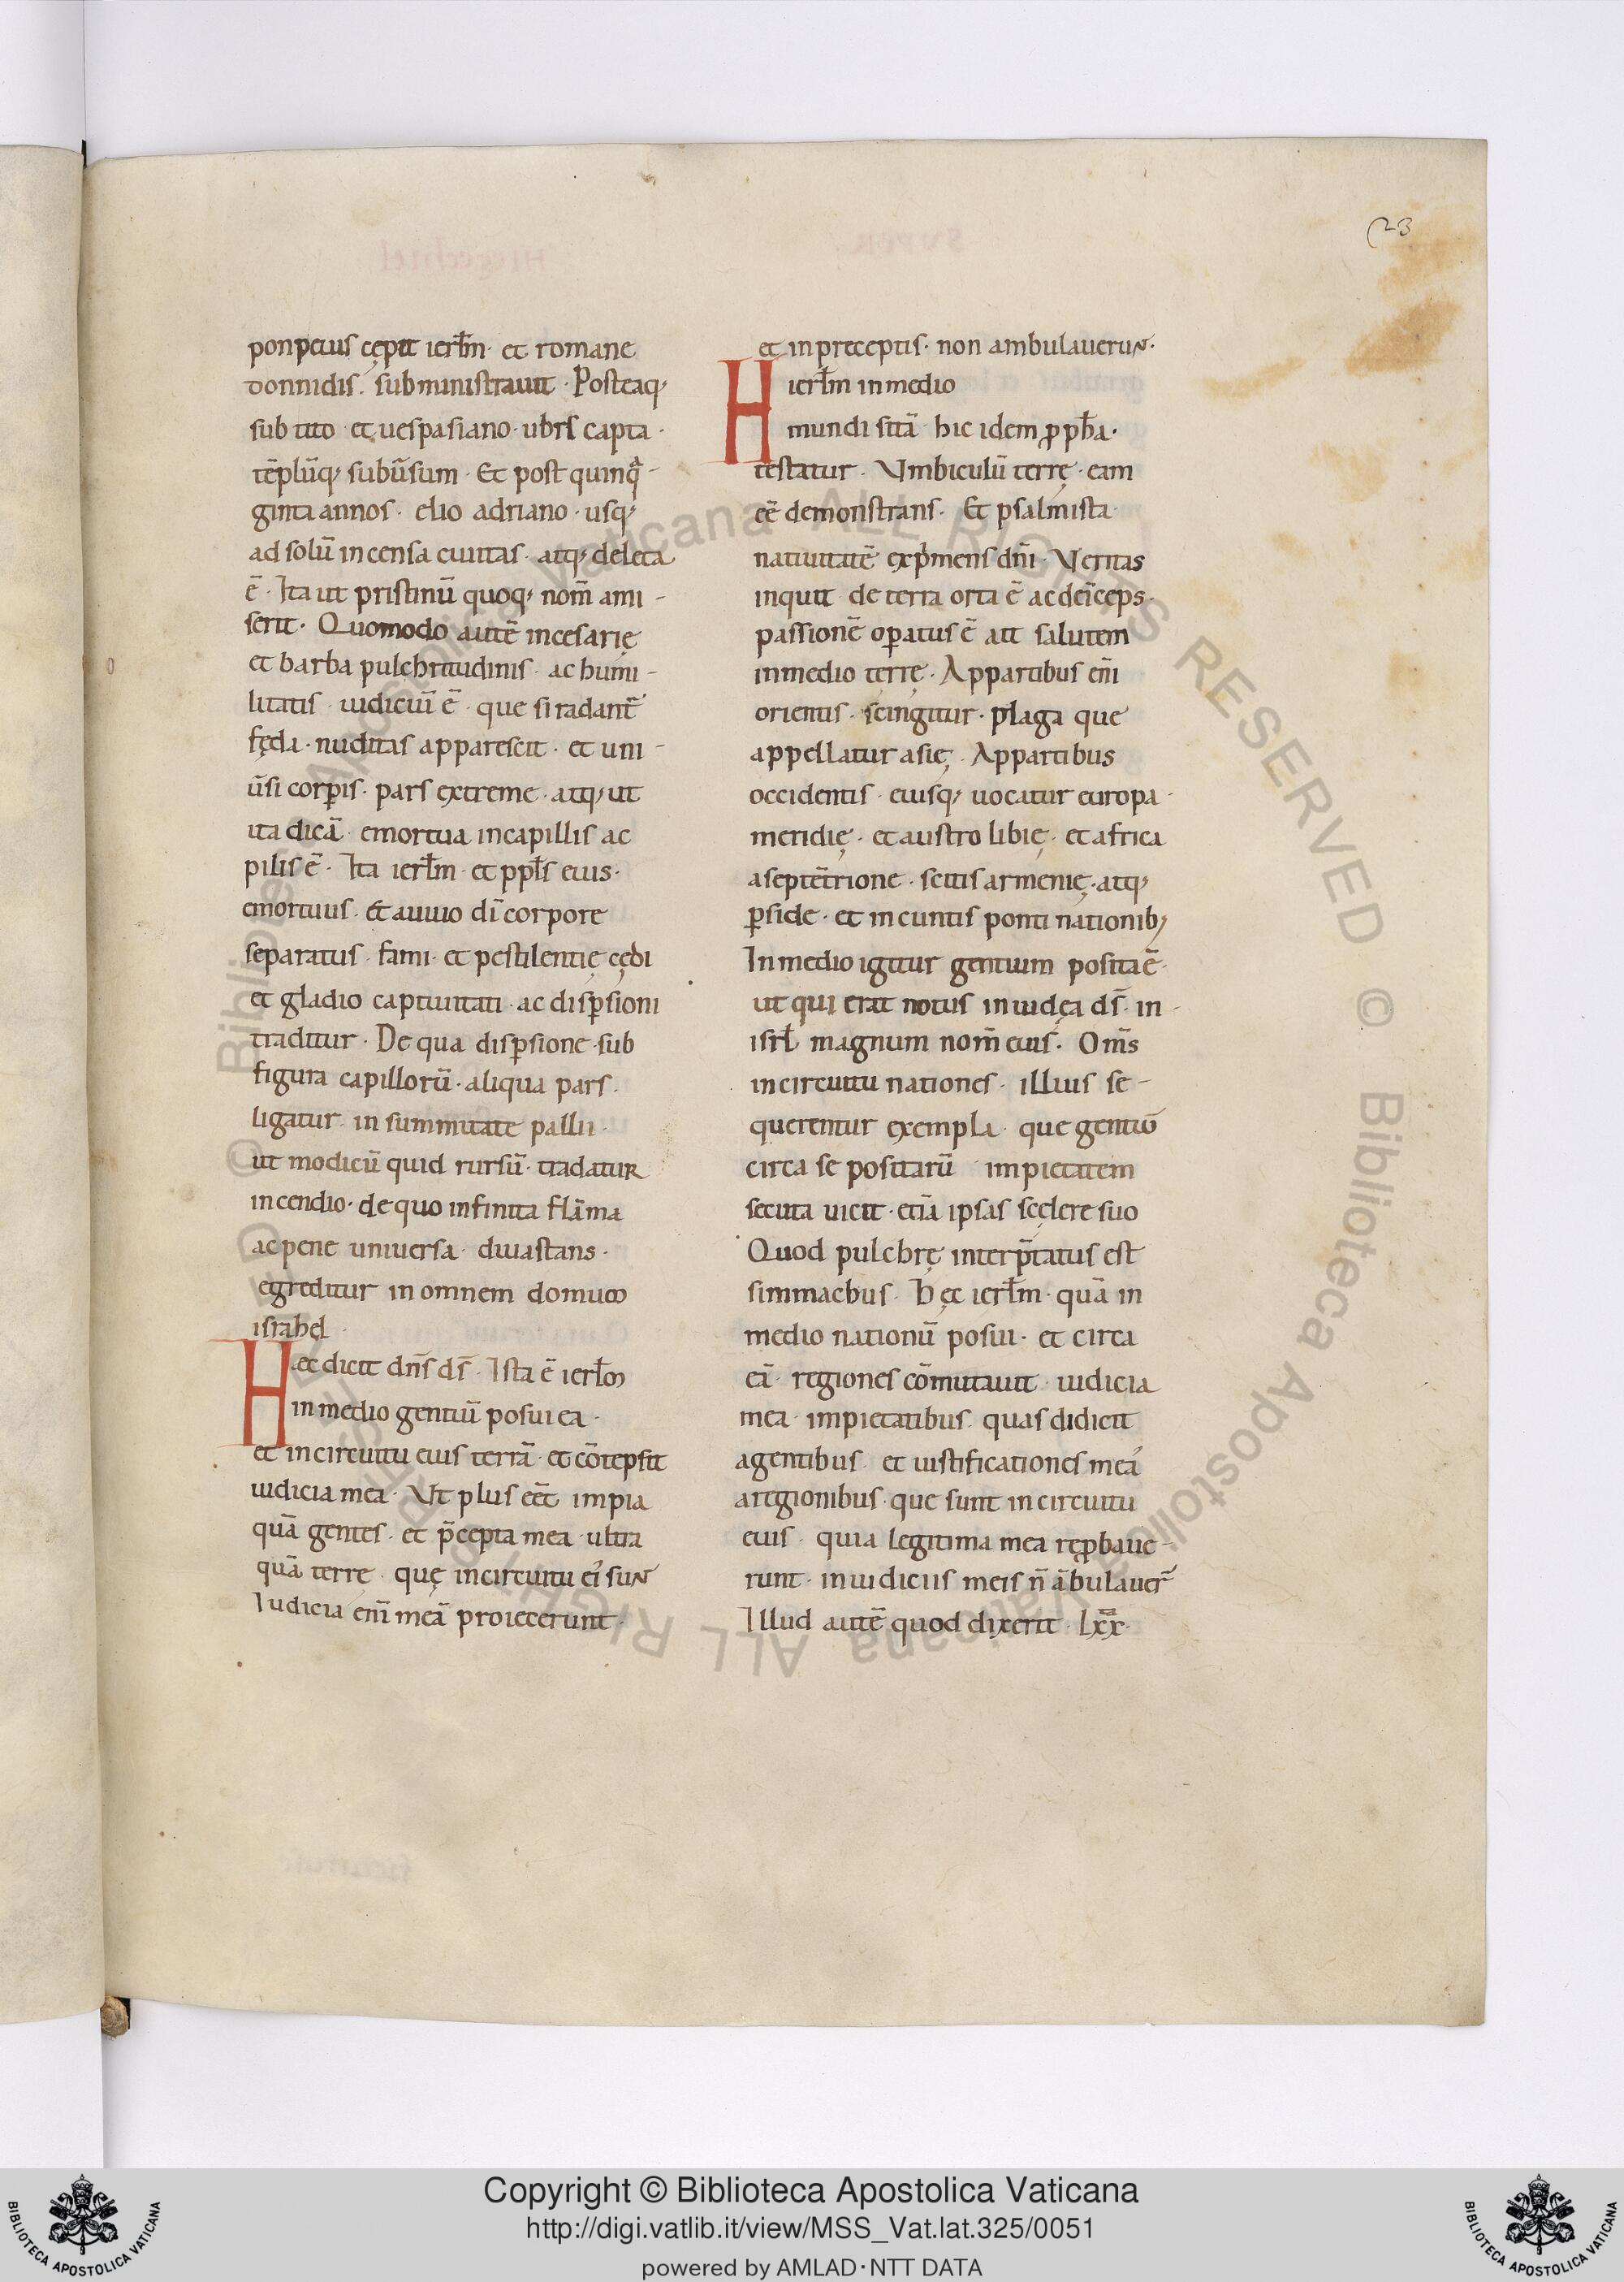 23
ponpeius cępit ierl̄m · et romane
donnidis . subministrauit · Posteaq;
sub tito · et uespasiano · ubrs capta ·
tēplūq; subūsum · Et post quinq̄ -
ginta annos · elio adriano · usq;
ad solū incensa ciuitas · atq; deleta
ē · Ita ut pristinū quoq; nom̄ ami -
serit · Quomodo autē in cesarię
et barba pulchritudinis · ac humi -
litatis · iudiciuī ē · que si radant̄
fęda · nuditas apparescit · et uni -
ūsi corp̱is · pars extreme · atq; ut
ita dicā · emortua in capillis ac
pilis ē · Ita ierl̄m · et ppl̄s eius ·
emortuus · Et auuio dī corpore
separatus · fami · et pestilentię cędi
et gladio captiuitati · ac disp̱sioni
traditur · De qua disp̱sione · sub
figura capillorū · aliqua pars ·
ligatur · in summitate pallii ·
ut modicū quid rursū · tradatur
incendio · de quo infinita flāma
ac pene uniuersa · diuastans ·
egreditur in omnem domum
israhel ·
Hęc dicit dn̄s ds̄ · Ista ē ierl̄m
in medio gentiū posui ea ·
et in circuitu eius terrā · et cōtepsit
iudicia mea · Ut plus eēt impia
quā gentes · et p̄cepta mea · ultra
quā terre · quę in circuitu ei᾽ sunt
Iudicia em̄ meā proiecerunt ·
et in preceptis · non ambulauerunt ·
Hierl̄m in medio
mundi sitā · hic idem p̱ph̄a ·
testatur · Vmbiculū terrę · eam
eē demonstrans · Et psalmista ·
natiuitatē exp̄mens dn̄i · Veritas
inquit de terra orta ē ac deīceps ·
passionē op̱atus ē · ait salutem
in medio terrę · Appartibus em̄
orientis · scingitur · plaga que
appellatur asię · Appartibus
occidentis · eiusq; uocatur europa ·
meridię · et austro libię · et africa
a septētrione · scitis armenię · atq;
p̱side · et in cuntis ponti nationib;
In medio igitur gentium posita ē ·
ut qui erat notus in iudęa ds̄ · in -
isrl̄ magnum nom̄ eius · Om̄s
in circuitu nationes · illius se -
querentur exempla · que gentiū
circa se positarū impietatem
secuta uicit · etiā ipsas scęlere suo
Quod pulchrę interp̄tatus est
simmachus · Hęc ierl̄m · quā in
medio nationū posui · et circa
eā · regiones cōmutauit iudicia
mea · impietatibus · quas didicit
agentibus · et iustificationes meā
a regionibus · que sunt in circuitu
eius · quia legitima mea rep̱baue -
runt · in iudiciis meis n̄ ābulauer̄
Illud autē quod dixerit · lxx̄ ·
Copyright © Biblioteca Apostolica Vaticana
http://digi.vatlib.it/view/MSS_Vat.lat.325/0051
powered by AMLAD·NTT DATA
BIBLIOTECA APOSTOLICA VATICANA
BIBLIOTECA APOSTOLICA VATICANA
© Biblioteca Apostolica Vaticana ALL RIGHTS RESERVED © Biblioteca Apostolica Vaticana ALL RIGHTS RESERVED